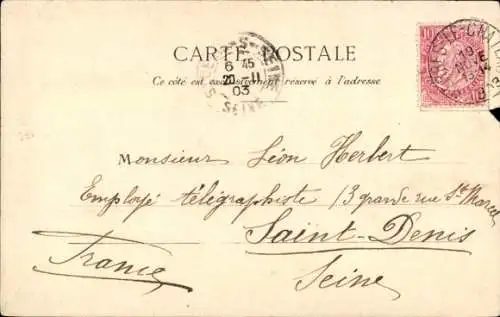 CARTE POSTALE
Ce côté est exclusivement réservé à l'adresse
6 45
20 - 11
03
SEINE
10
Monsieur Léon Herbert
Employé télégraphiste 13 grande rue St Marcel
Saint-Denis
France
Seine